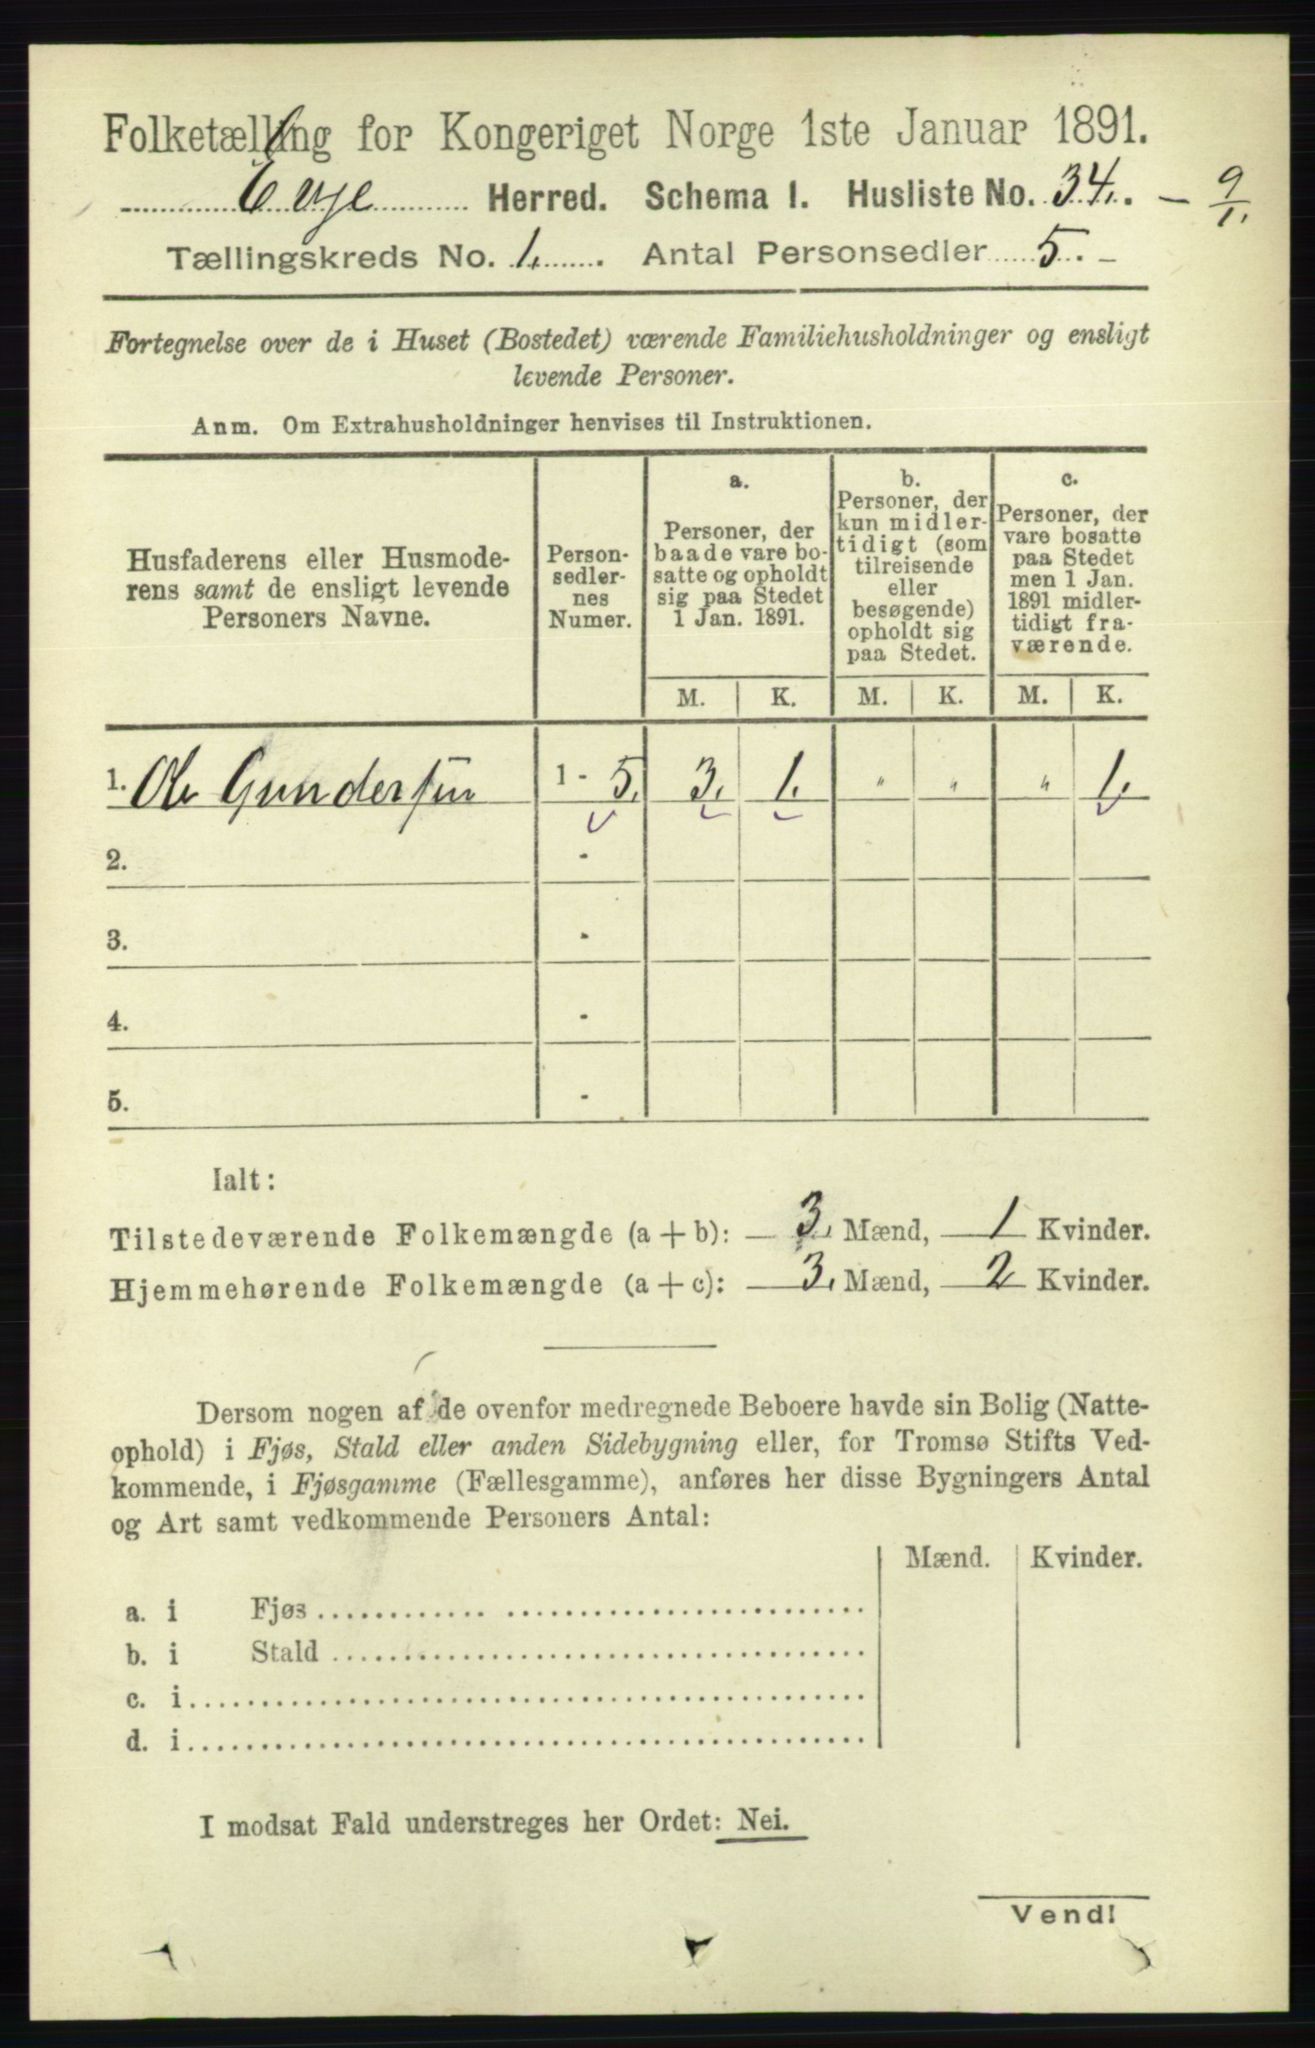 Folketælling for Kongeriget Norge 1ste Januar 1891.
Evje Herred. Schema I. Husliste No. 34. – 9/1.
Tællingskreds No. 1. Antal Personsedler 5. –
Fortegnelse over de i Huset (Bostedet) værende Familiehusholdninger og ensligt
levende Personer.
Anm. Om Extrahusholdninger henvises til Instruktionen.
Husfaderens eller Husmode-
rens samt de ensligt levende
Personers Navne.
Person-
sedler-
nes
Numer.
a.
Personer, der
baade vare bo-
satte og opholdt
sig paa Stedet
1 Jan. 1891.
b.
Personer, der
kun midler-
tidigt (som
tilreisende
eller
besøgende)
opholdt sig
paa Stedet.
c.
Personer, der
vare bosatte
paa Stedet
men 1 Jan.
1891 midler-
tidigt fra-
værende.
M. K. M. K. M. K.
1. Ole Gundersen 1 - 5. 3. 1. " " " 1.
2. -
3. -
4. -
5. -
Ialt:
Tilstedeværende Folkemængde (a + b): 3. Mænd, 1 Kvinder.
Hjemmehørende Folkemængde (a + c): 3. Mænd, 2 Kvinder.
Dersom nogen af de ovenfor medregnede Beboere havde sin Bolig (Natte-
ophold) i Fjøs, Stald eller anden Sidebygning eller, for Tromsø Stifts Ved-
kommende, i Fjøsgamme (Fællesgamme), anføres her disse Bygningers Antal
og Art samt vedkommende Personers Antal:
Mænd. Kvinder.
a. i Fjøs
b. i Stald
c. i
d. i
I modsat Fald understreges her Ordet: Nei.
Vend!